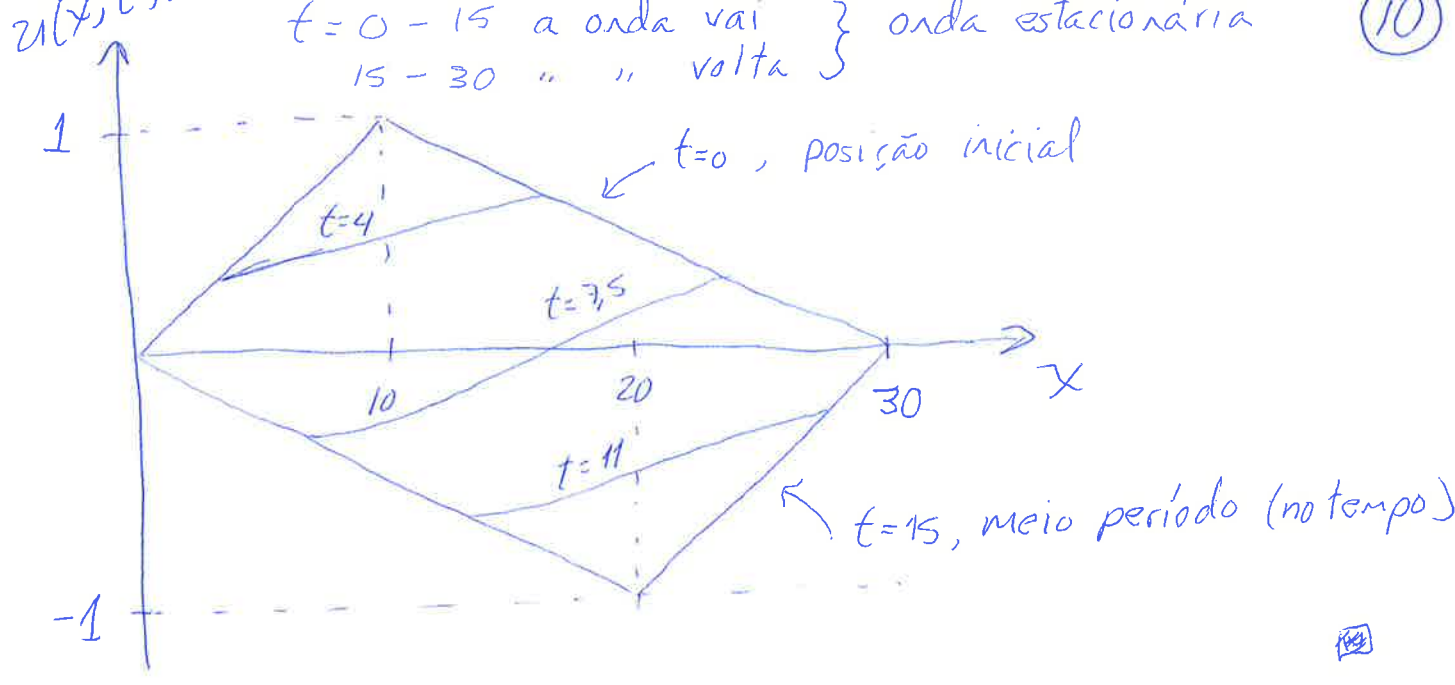 u(x,t)
t=0-15 a onda vai } onda estacionária
10
15-30 " " volta }
1
t=0, posição inicial
t=4
t=7,5
10
20
30
x
t=11
t=15, meio período (no tempo)
-1